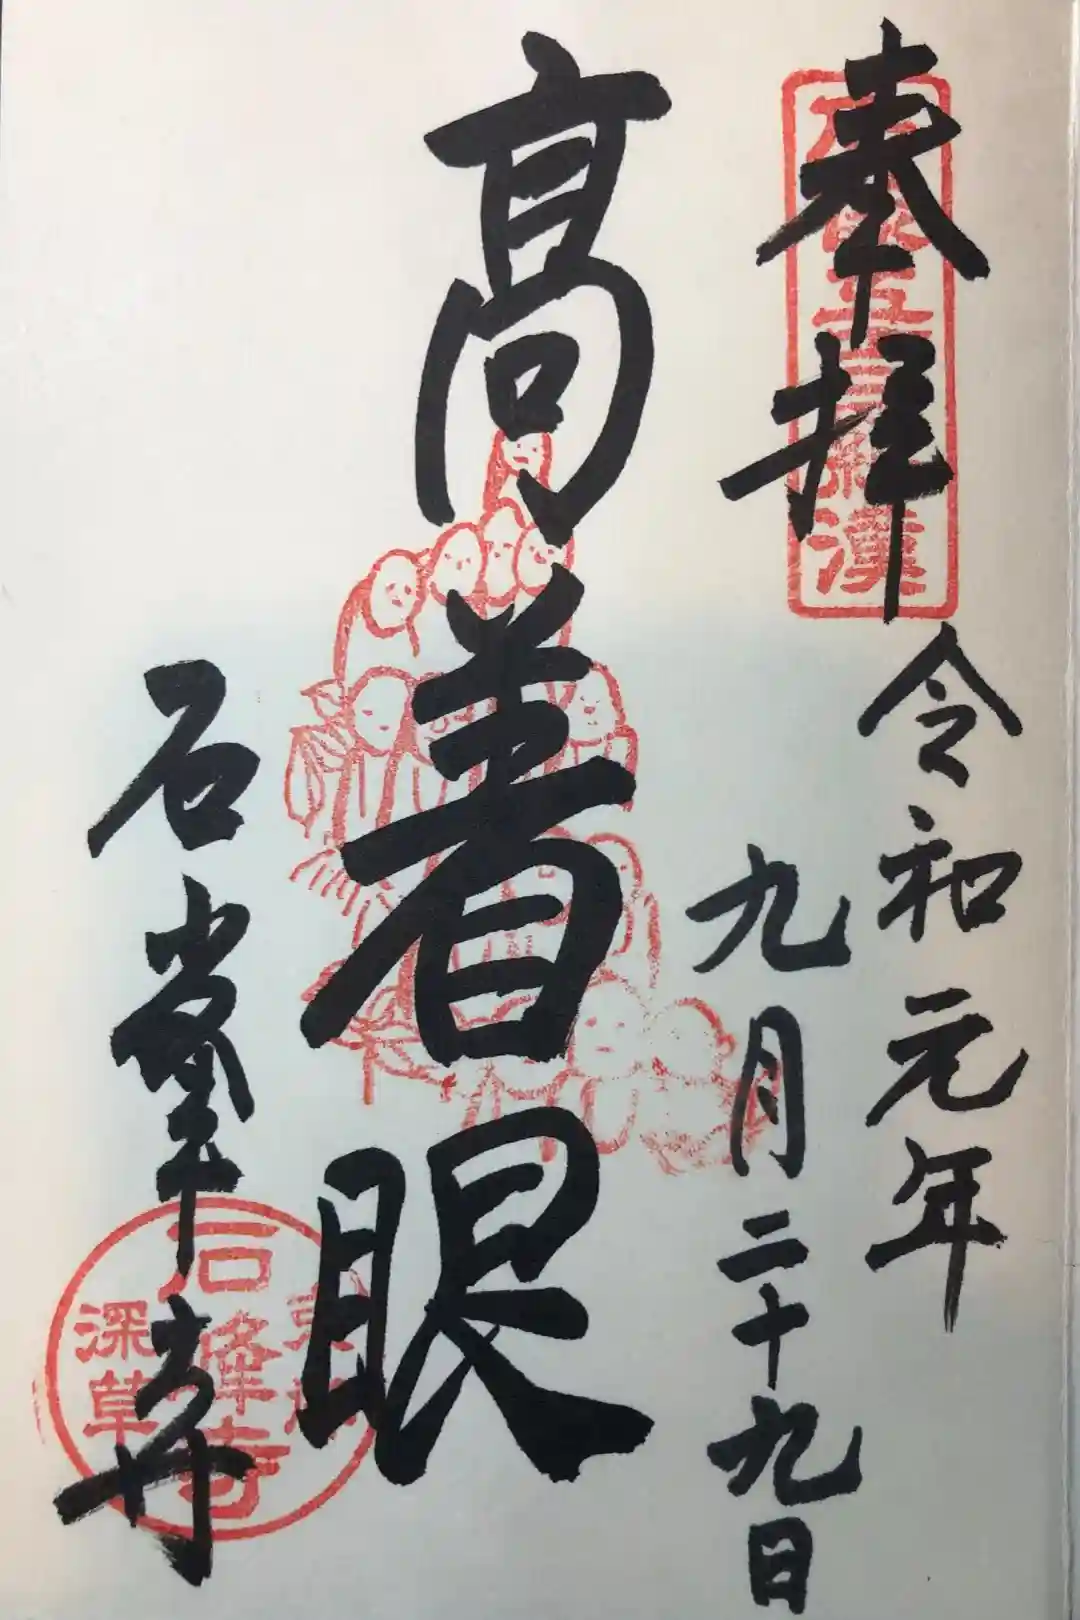 奉拝
五百羅漢
令和元年
九月二十九日
高着眼
石峯寺
石峰寺
深草